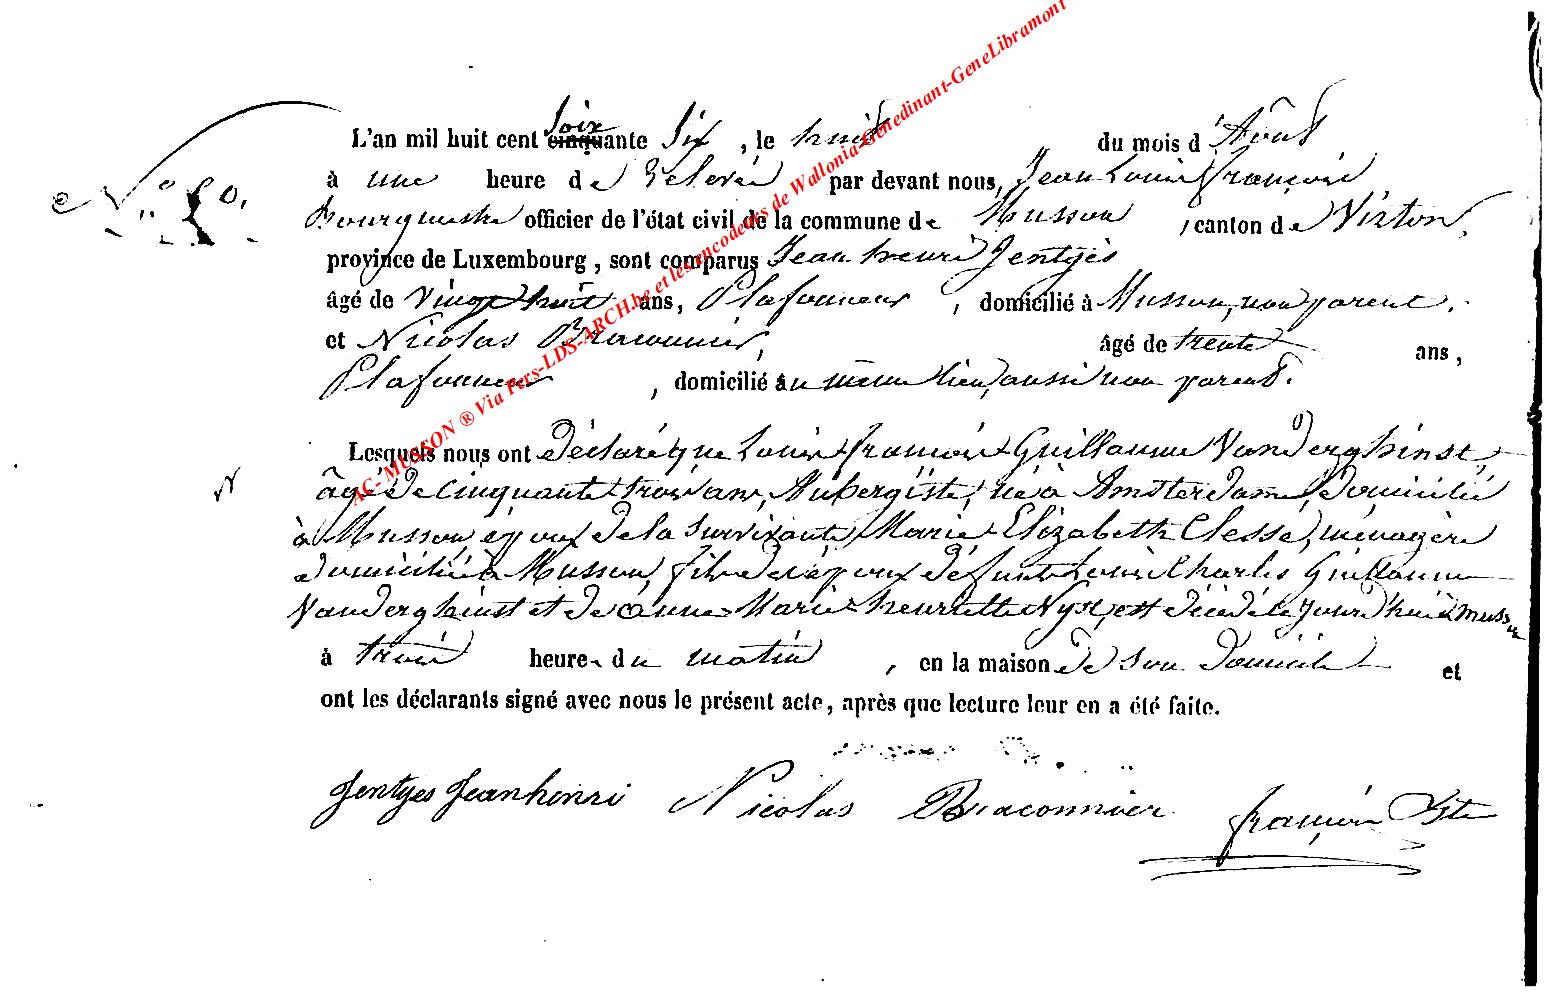 L'an mil huit cent soixante six, le huit du mois d'Août
N° 20.
à une heure de relevée par devant nous, Jean Louis François
Bourgmestre officier de l'état civil de la commune de Musson, canton de Virton,
province de Luxembourg, sont comparus Jean henri Jentges
âgé de vingt huit ans, Plafonneur, domicilié à Musson, non parent.
et Nicolas Braconnier, âgé de trente ans,
Plafonneur, domicilié au même lieu, aussi non parent.
Lesquels nous ont déclaré que Louis françois Guillaume Vanderghinst,
âgé de cinquante trois ans, Aubergiste, né à Amsterdam, domicilié
à Musson, époux de la survivante Marie Elizabeth Clesse, ménagère
domiciliée à Musson, fils des époux défunts Louis Charles Guillaume
Vanderghinst et de Anne Marie henriette Nyst, est décédé le jourd'hui à Musson
à trois heures du matin, en la maison de son domicile et
ont les déclarants signé avec nous le présent acte, après que lecture leur en a été faite.
Jentges Jean henri Nicolas Braconnier françois
AC- MUSSON ® Via Pers-LDS-ARCH.be et les encodeurs de Wallonia-Genedinant-GeneLibramont